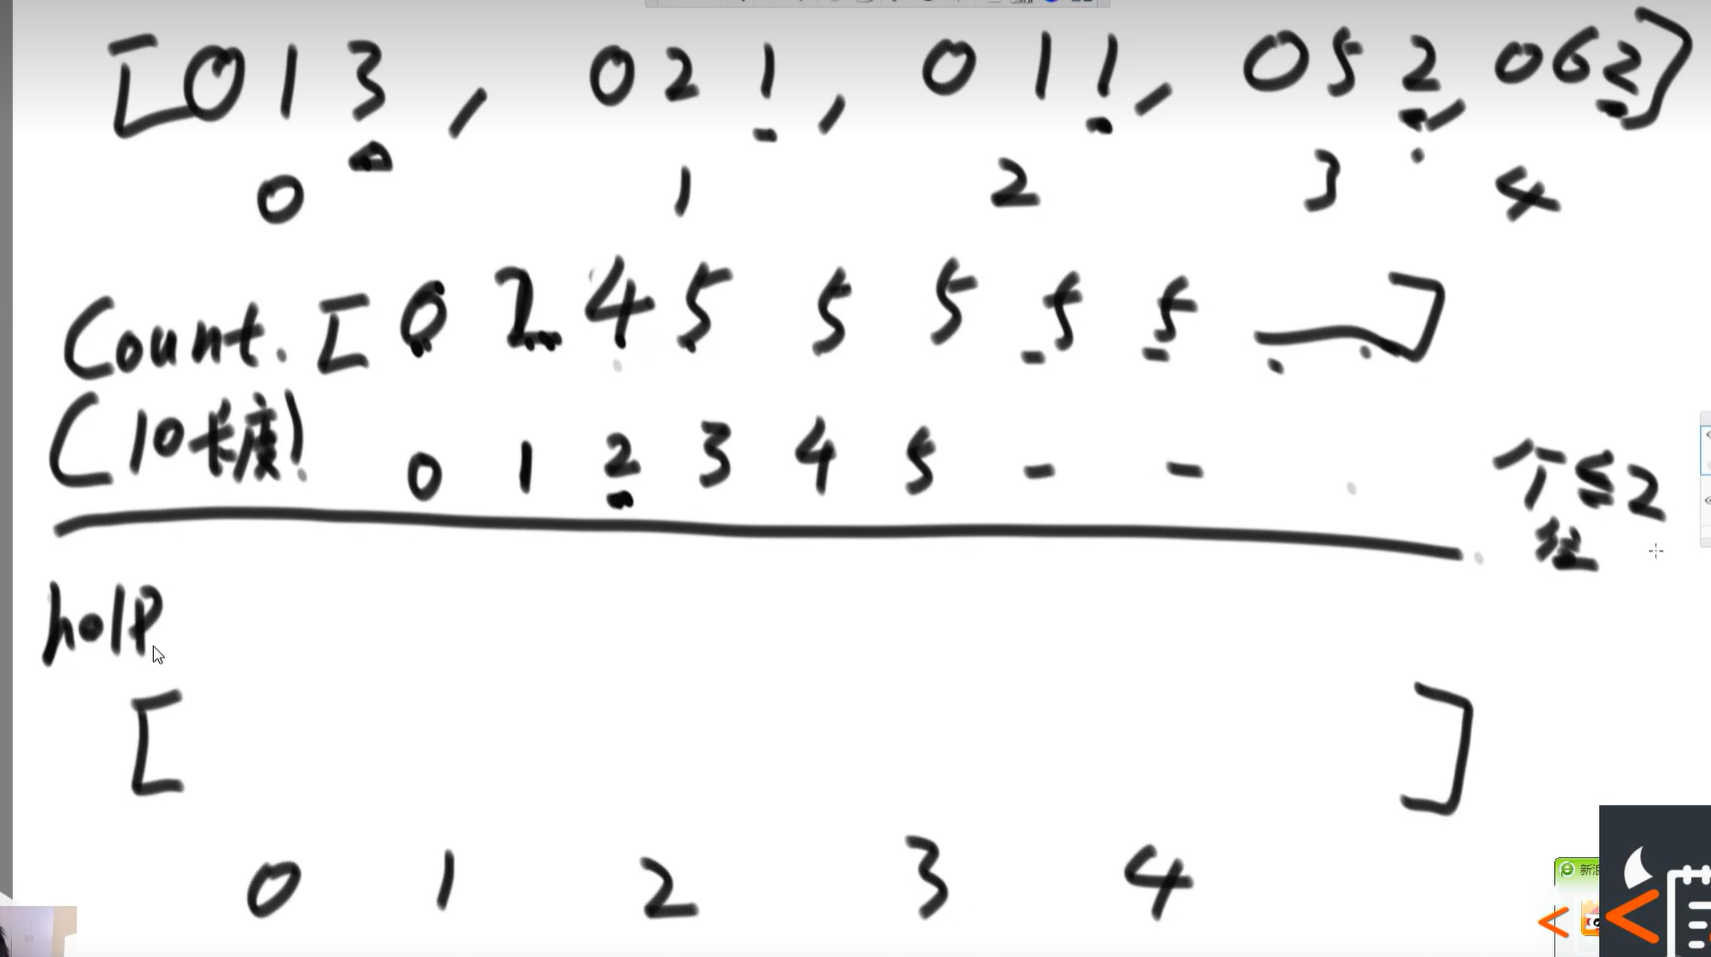 [013, 021, 011, 052, 062]
0 1 2 3 4
Count. [0 2 4 5 5 5 5 5 ]
(10长度) 0 1 2 3 4 5 - -
个≤2
help
[ ]
0 1 2 3 4